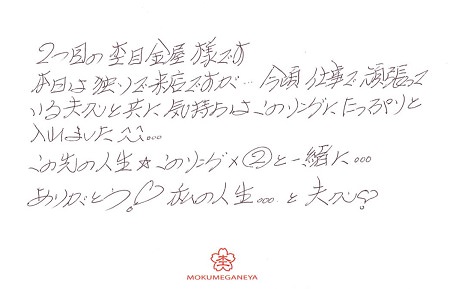 2つ目の杢目金屋様です
本日は独りで来店ですが…今頃仕事で頑張って
いる夫クンと共に気持ちはこのリングにたっぷりと
入れました^^…
この先の人生☆このリング×②と一緒に…
ありがとう!♡私の人生…と夫クン♡
杢
MOKUMEGANEYA